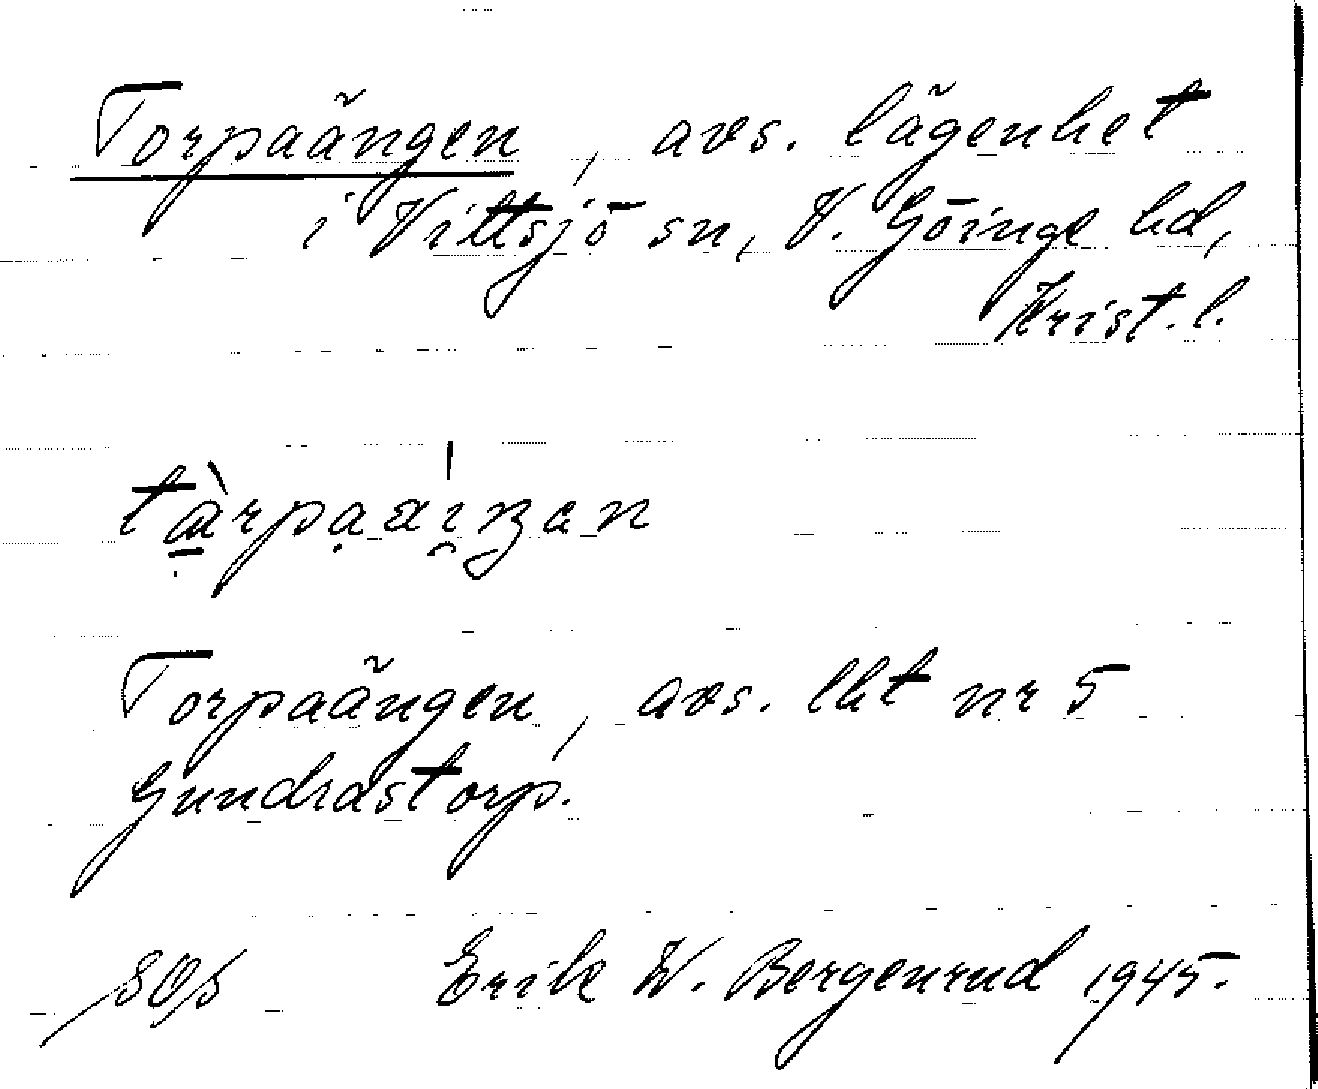 Torpaängen, avs. lägenhet
i Vittsjö sn, V. Göinge hd,
Krist. l.
Torpaängen, avs. lht nr 5
Gundrastorp.
Erik W. Bergenrud 1945.